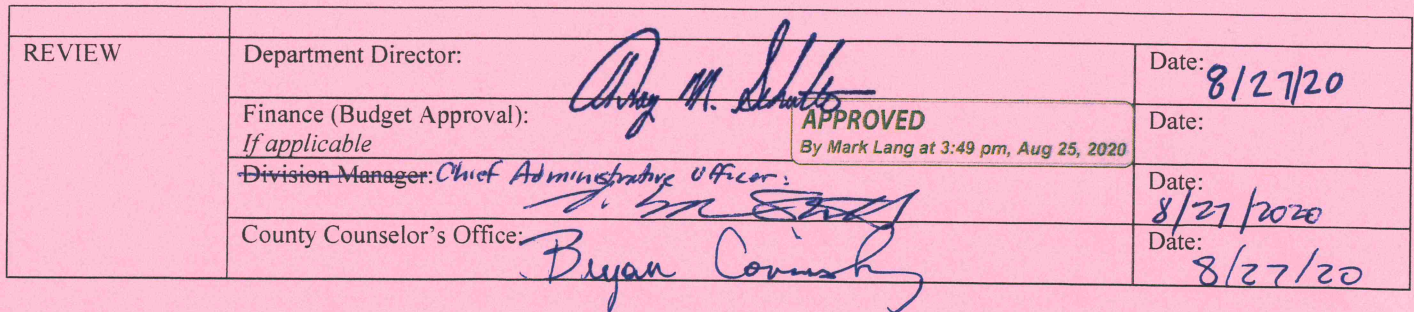 REVIEW
Department Director:
M.
Date: 8/27/20
Finance (Budget Approval):
If applicable
APPROVED
By Mark Lang at 3:49 pm, Aug 25, 2020
Date:
Division Manager: Chief Administrative Officer:
Date:
8/27/2020
County Counselor's Office:
Bryan Covinsky
Date:
8/27/20